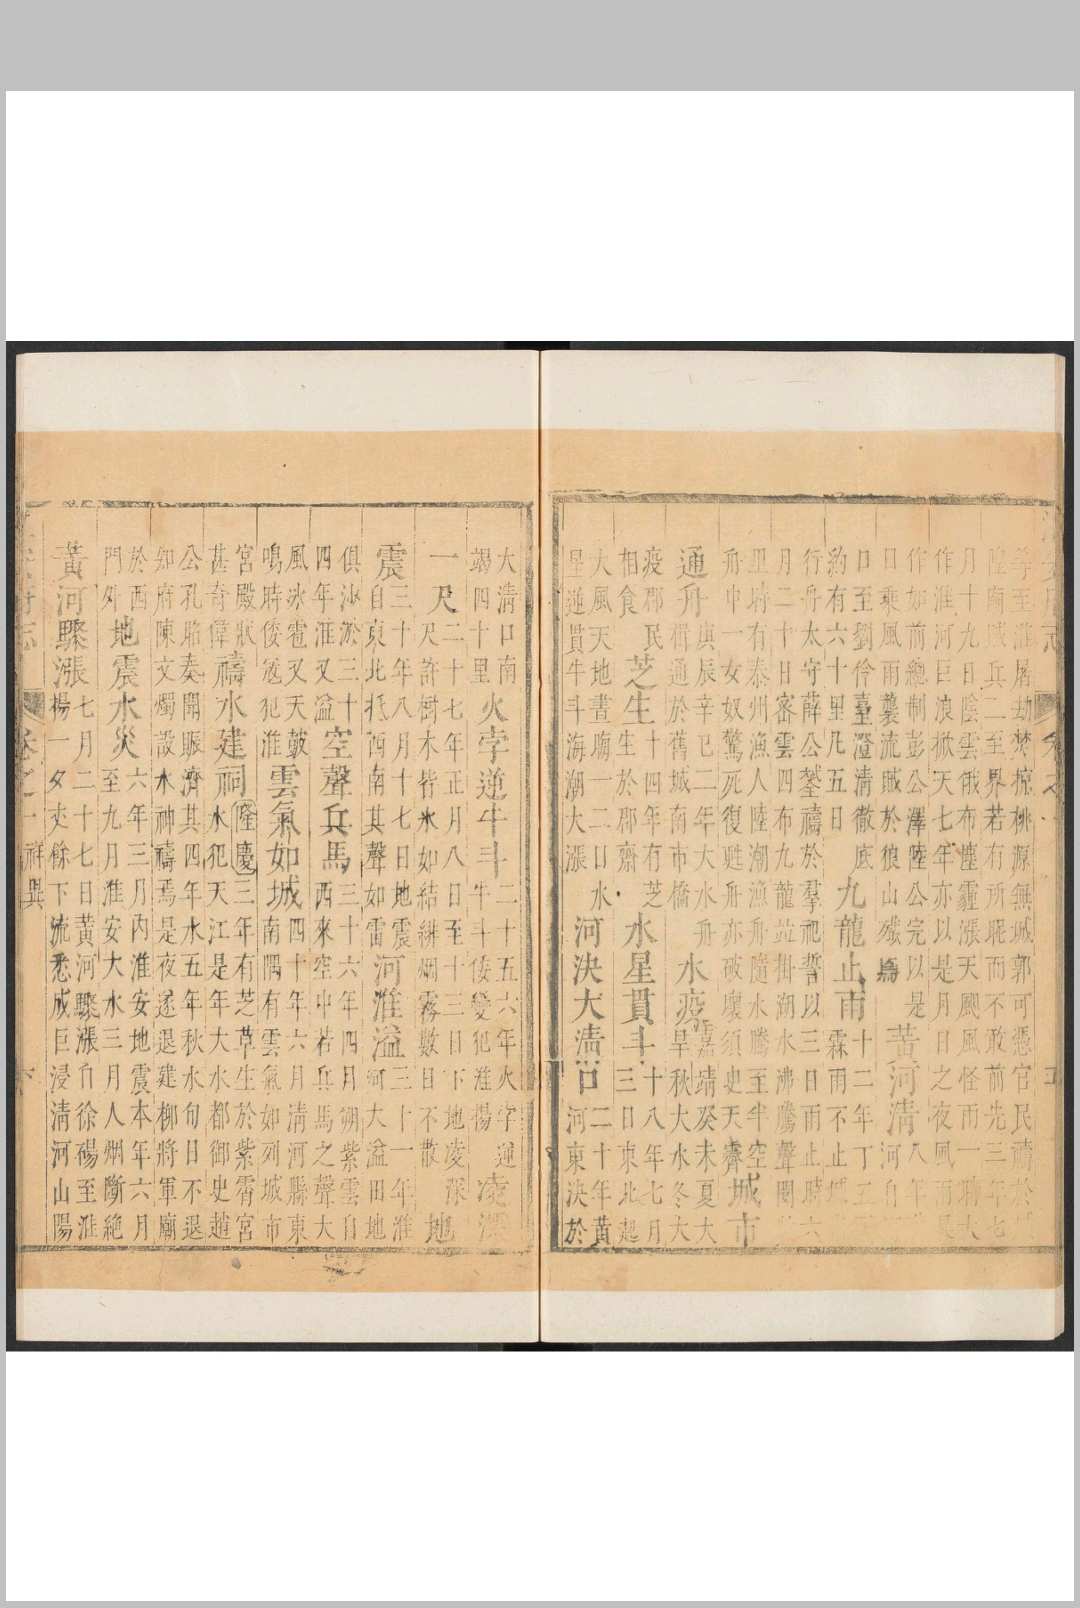 等至淮屠劫焚掠桃源無城郭可憑官民禱於
隍廟賊兵二至界若有所駭而不敢前先三年七
月十九日陰雲俄布塵霾漲天颶風怪雨一晌大
作淮河巨浪掀天七年亦以是月日之夜風雨
作如前總制彭公澤陸公完以是
日乘風雨襲流賊於狼山殲焉
黃河清
八年
河自
口至劉伶臺澄清徹底
約有六十里凡五日
九龍止雨
十二年丁丑
霖雨不止城
行舟太守薛公鏊禱於羣祀誓以三日雨止時六
月二十日密雲四布九龍竝掛潮水沸騰聲聞
里坍有泰州漁人陸潮漁舟隨水騰至半空
舟中一女奴驚死復甦舟亦破壞須臾天霽
城市
通舟
庚辰辛巳二年大水舟
楫通於舊城南市橋
水疫
嘉靖癸未夏大
旱秋大水冬大
疫郡民
相食
芝生
十四年有芝
生於郡齋
水星貫斗
十八年七月
三日東北起
大風天地晝晦一二日水
星逆貫牛斗海潮大漲
河決大清口
二十年黃
河東決於
大清口南
竭四十里
火孛逆牛斗
二十五六年火孛運
牛斗倭變犯淮揚
凌深
一尺
二十七年正月八日至十三日下地凌深
尺許樹木皆氷如結緋烟霧數日不散
地
震
三十年八月十七日地震
自東北抵西南其聲如雷
河淮溢
三十一年淮
河大溢田地
俱沙淤三十
四年淮又溢
空聲兵馬
三十六年四月朔紫雲自
西來空中若兵馬之聲大
風氷雹又天鼓
鳴時倭寇犯淮
雲氣如城
四十年六月清河縣東
南隅有雲氣如列城市
宮殿狀
甚奇偉
禱水建祠
隆慶三年有芝草生於紫霄宮
水犯天江是年大水都御史趙
公孔昭奏開賑濟其四年水五年秋水旬日不退
知府陳文燭設水神禱焉是夜遂退建柳將軍廟
於西
門外
地震水災
六年三月內淮安地震本年六月
至九月淮安大水三月人烟斷絕
黃河驟漲
七月二十七日黃河驟漲自徐碭至淮
揚一夕丈餘下流悉成巨浸清河山陽
卷之一
祥異
六